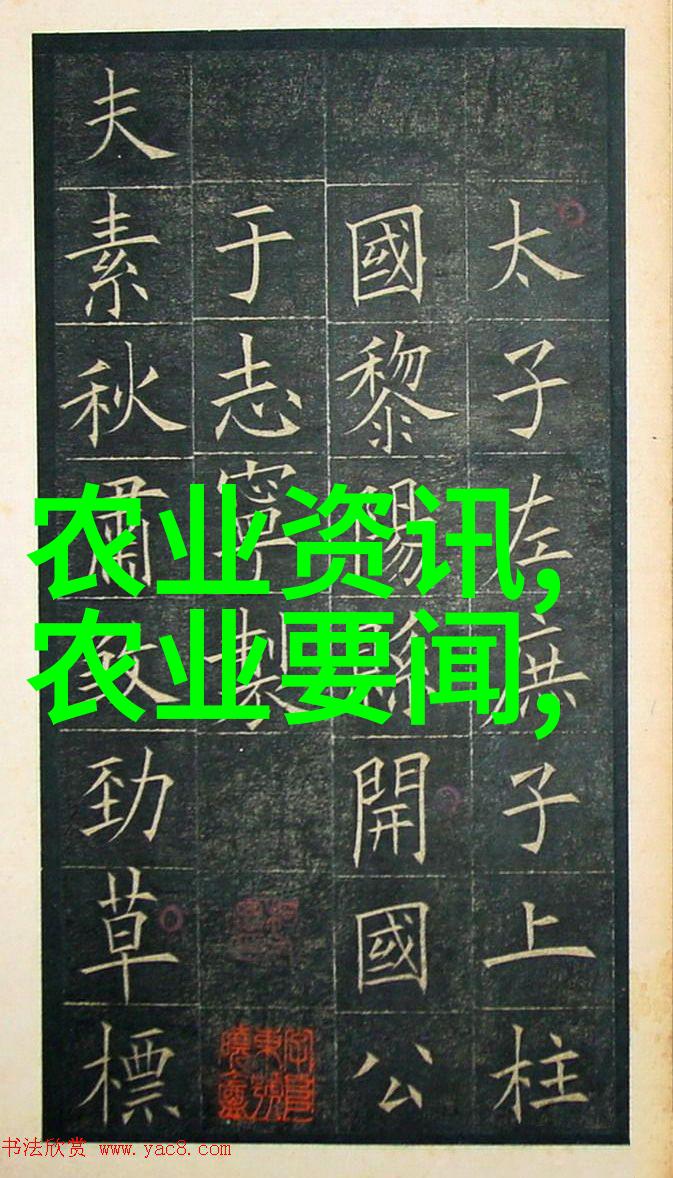 太子左庶子上柱
國黎陽縣開國公
于志寧製
夫素秋肅勁草標
农业资讯,
农业要闻,
书法欣赏 www.yac8.com